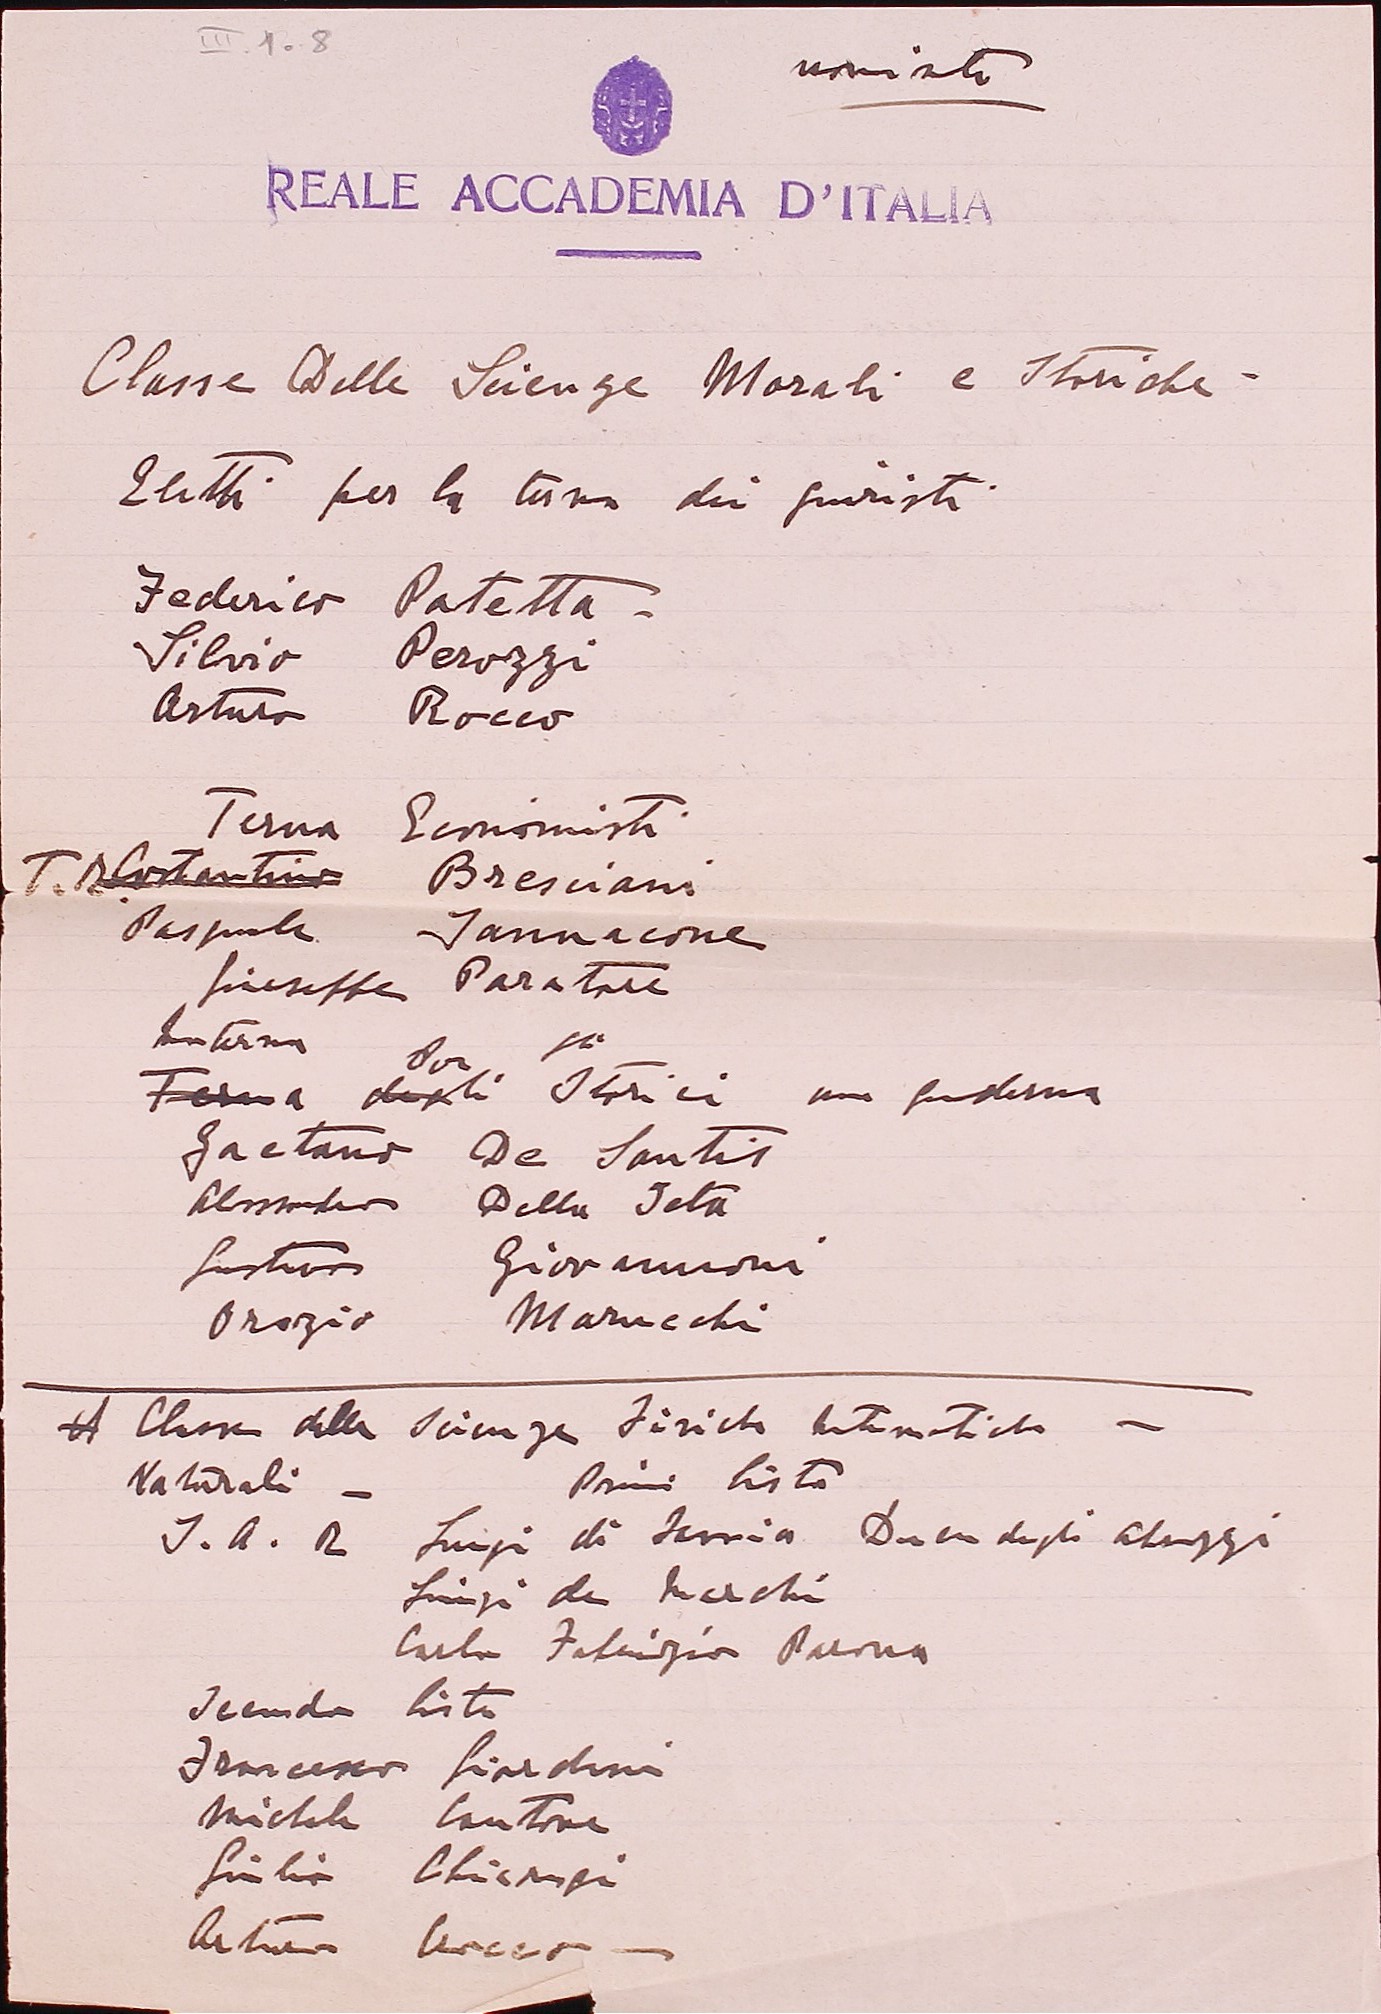 III.1.8
nominati
REALE ACCADEMIA D'ITALIA
Classe Delle Scienze Morali e Storiche -
Eletti per la terna dei giuristi
Federico Patetta -
Silvio Perozzi
Arturo Rocco
Terna Economisti
T. R. Costantino Bresciani
Pasquale Jannacone
Giuseppe Paratore
per gli
Terna degli Storici una quaderna
Gaetano De Santis
Alessandro Della Seta
Gustavo Giovannoni
Orazio Marucchi
Classe delle Scienze Fisiche Matematiche —
Naturali — Prima lista
S. A. R Luigi di Savoia Duca degli Abruzzi
Luigi de Marchi
Carlo Fabrizio Parona
Seconda lista
Francesco Giordani
Michele Cantone
Giulio Chiarugi
Arturo —